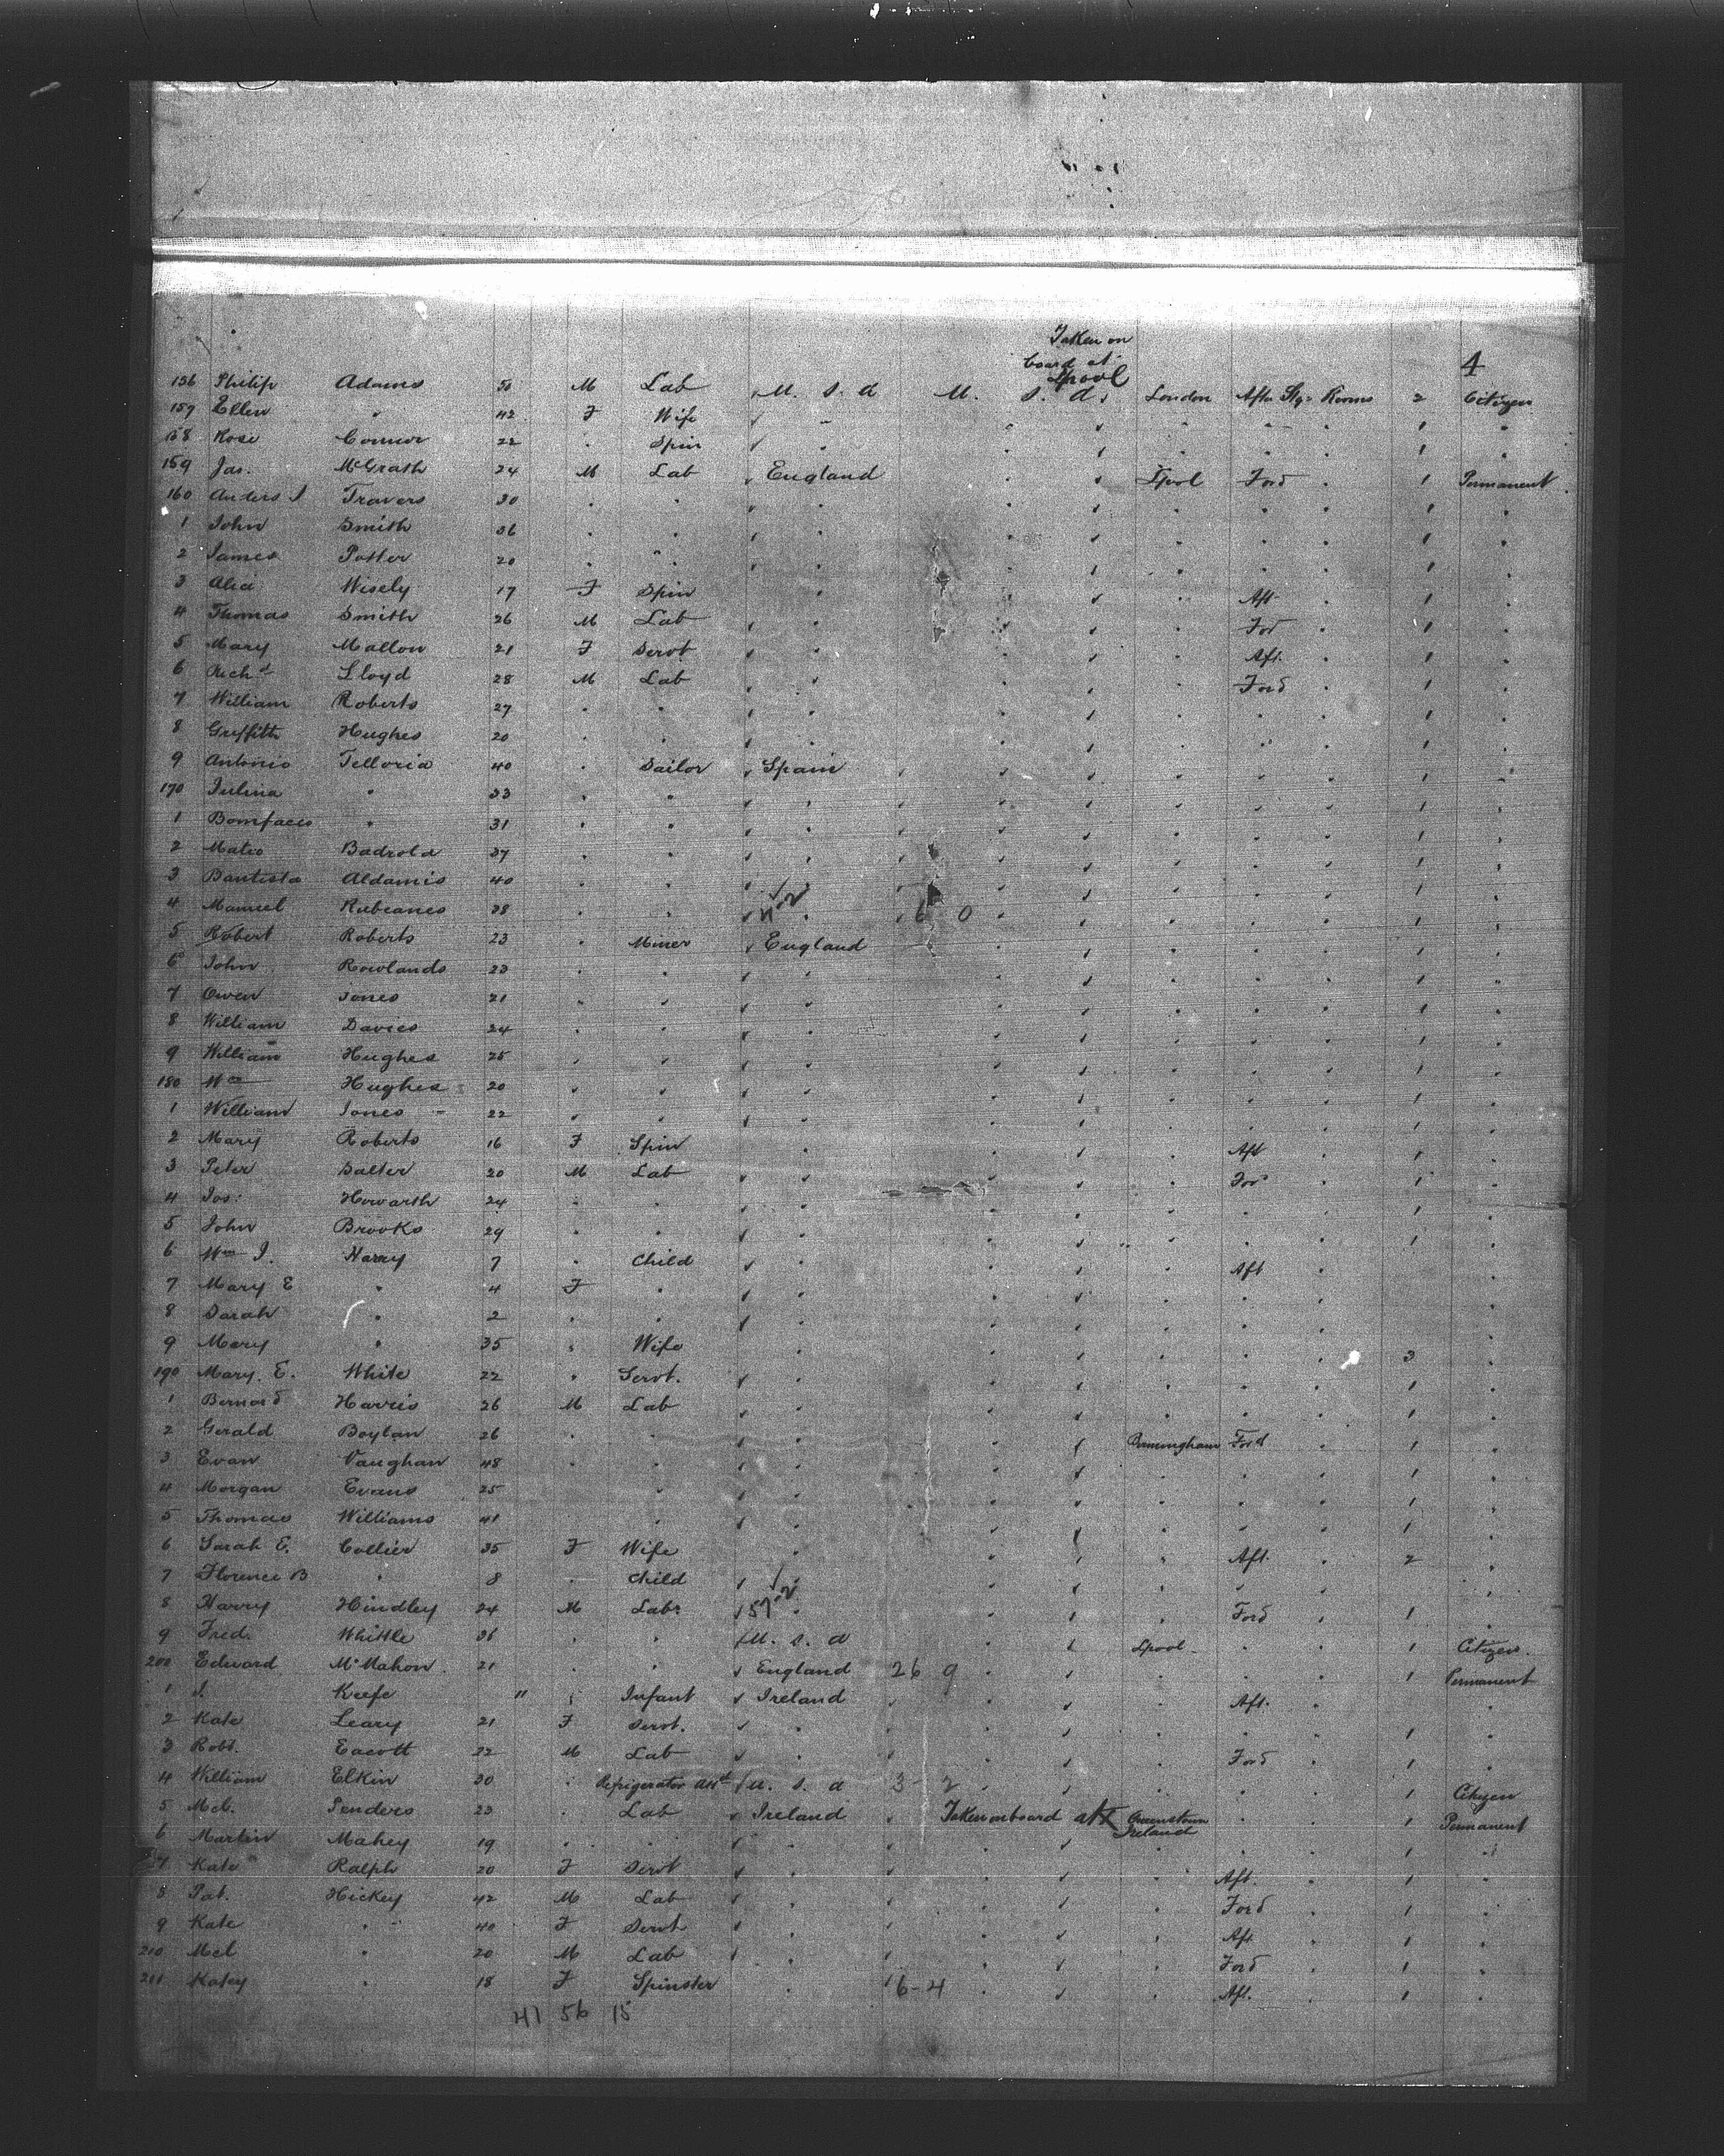 Taken on
board at
Lpool
4
156 Philip Adams 50 M Lab U. S. A U. S. A. London Aftr Stge Rooms 2 Citizen
157 Ellen " 42 F Wife " " " " 1 "
158 Rose Connor 22 " Spin " " " " 1 "
159 Jas. McGrath 24 M Lab England " Lpool Ford " 1 Permanent
160 Travers 30 " " " " " " " 1 "
1 John Smith 36 " " " " " " " 1 "
2 James Potter 20 " " " " " " " 1 "
3 Wisely 17 F Spin " " " Aft " 1 "
4 Thomas Smith 26 M Lab " " " Ford " 1 "
5 Mary Mallon 21 F Servt " " " Aft. " 1 "
6 Richd Lloyd 28 M Lab " " " Ford " 1 "
7 William Roberts 27 " " " " " " " 1 "
8 Griffith Hughes 20 " " " " " " " 1 "
9 Antonio Telloria 40 " Sailor Spain " " " " 1 "
170 " 33 " " " " " " " 1 "
1 " 31 " " " " " " " 1 "
2 Mateo Badrola 37 " " " " " " " 1 "
3 Bautista Aldamis 40 " " " " " " " 1 "
4 Manuel Rubeanes 38 " " " 6 0 " " " " 1 "
5 Robert Roberts 23 " Miner England " " " " 1 "
6 John Rowlands 23 " " " " " " " 1 "
7 Owen Jones 21 " " " " " " " 1 "
8 William Davies 24 " " " " " " " 1 "
9 William Hughes 25 " " " " " " " 1 "
180 Wm Hughes 20 " " " " " " " 1 "
1 William Jones 22 " " " " " " " 1 "
2 Mary Roberts 16 F Spin " " " Aft " 1 "
3 Peter Salter 20 M Lab " " " Ford " 1 "
4 Jos: Howarth 24 " " " " " " " 1 "
5 John Brooks 29 " " " " " " " 1 "
6 Wm J. Harry 7 " Child " " " Aft " "
7 Mary E " 4 F " " " " " " "
8 Sarah " 2 " " " " " " " "
9 Mary " 35 " Wife " " " " " 3 "
190 Mary. E. White 22 " Servt. " " " " " 1 "
1 Bernard Harris 26 M Lab " " " " " 1 "
2 Gerald Boylan 26 " " " " Birmingham Ford " 1 "
3 Evan Vaughan 48 " " " " " " " 1 "
4 Morgan Evans 25 " " " " " " " 1 "
5 Thomas Williams 41 " " " " " " " 1 "
6 Sarah E. Collier 35 F Wife " " " Aft. " 2 "
7 Florence B " 8 " Child " " " " " "
8 Harry Hindley 24 M Labr 57 " " " Ford " 1 "
9 Fred. Whittle 36 " " U. S. A " Lpool " " 1 Citizen.
200 Edward McMahon 21 " " England 26 9 " " " " 1 Permanent
1 J. Keefe 11 " Infant Ireland " " Aft. " "
2 Kate Leary 21 F Servt. " " " " " 1 "
3 Robt. Eacott 22 M Lab " " " Ford " 1 "
4 William Elkin 30 " Refrigerator U. S. A 3-2 " " " " 1 Citizen
5 Mcl. Penders 23 " Lab Ireland Taken onboard at Queenstown Ireland " " 1 Permanent
6 Martin Mahey 19 " " " " " " " 1 "
7 Kate Ralph 20 F Servt " " " Aft. " 1 "
8 Pat. Hickey 42 M Lab " " " Ford " 1 "
9 Kate " 40 F Servt " " " Aft " 1 "
210 Mcl " 20 M Lab " " " Ford " 1 "
211 Katey " 18 F Spinster " 6-4 " " Aft. " 1 "
41 56 15